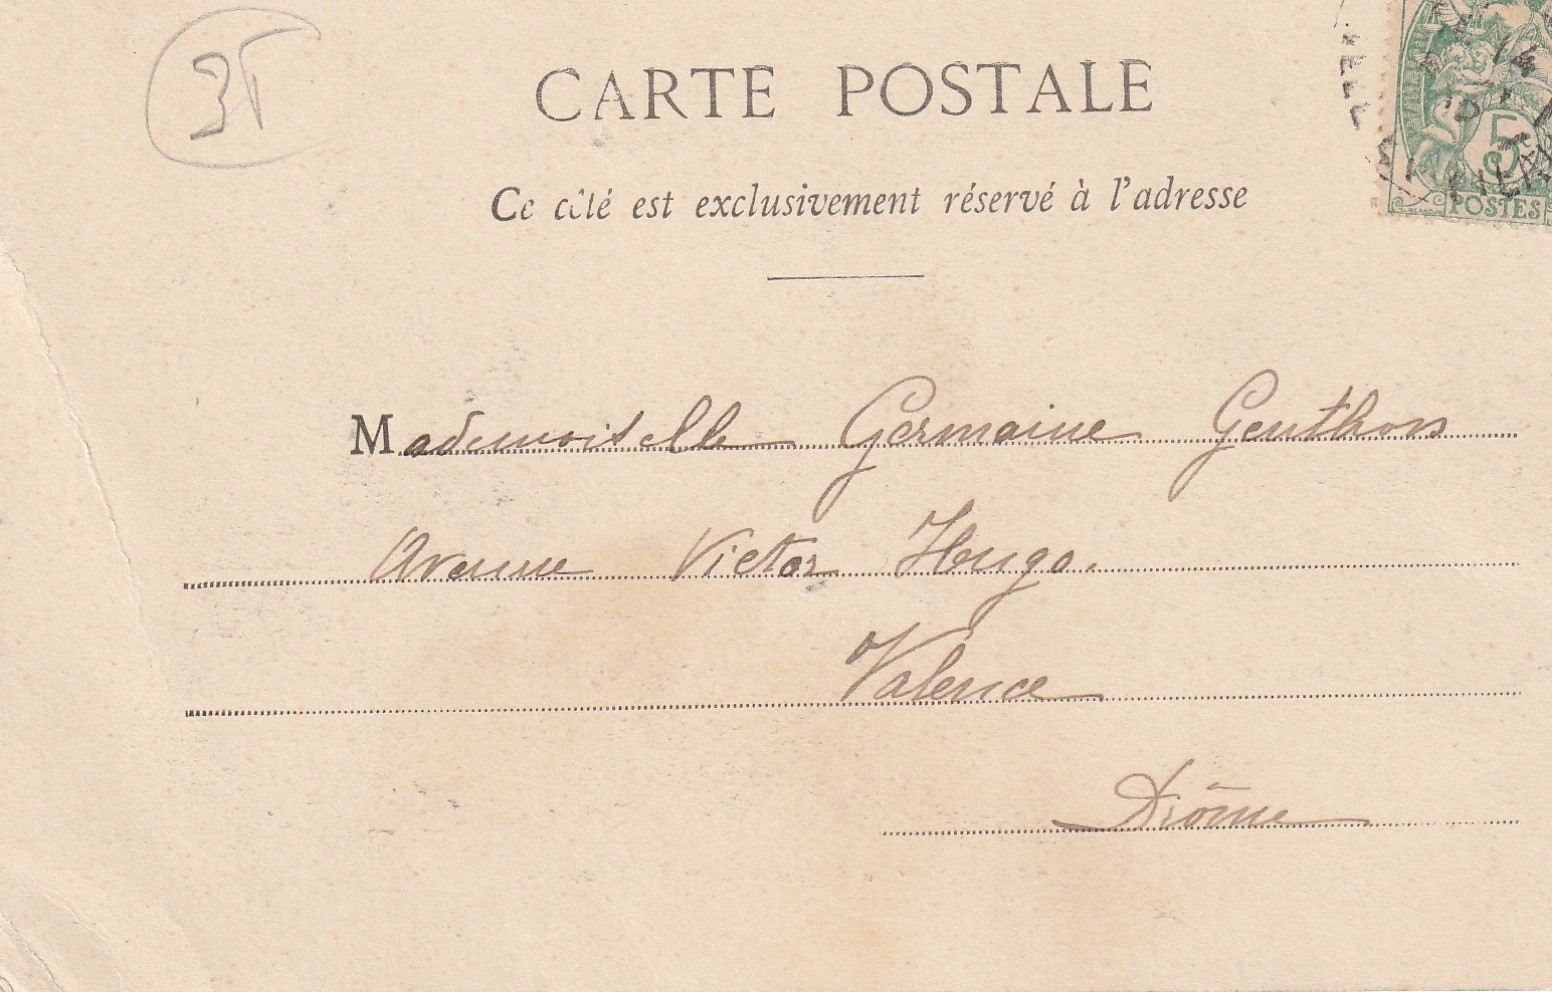 CARTE POSTALE
Ce côté est exclusivement réservé à l'adresse
5
POSTES
Mademoiselle Germaine Genthon
Avenue Victor Hugo.
Valence
Drôme